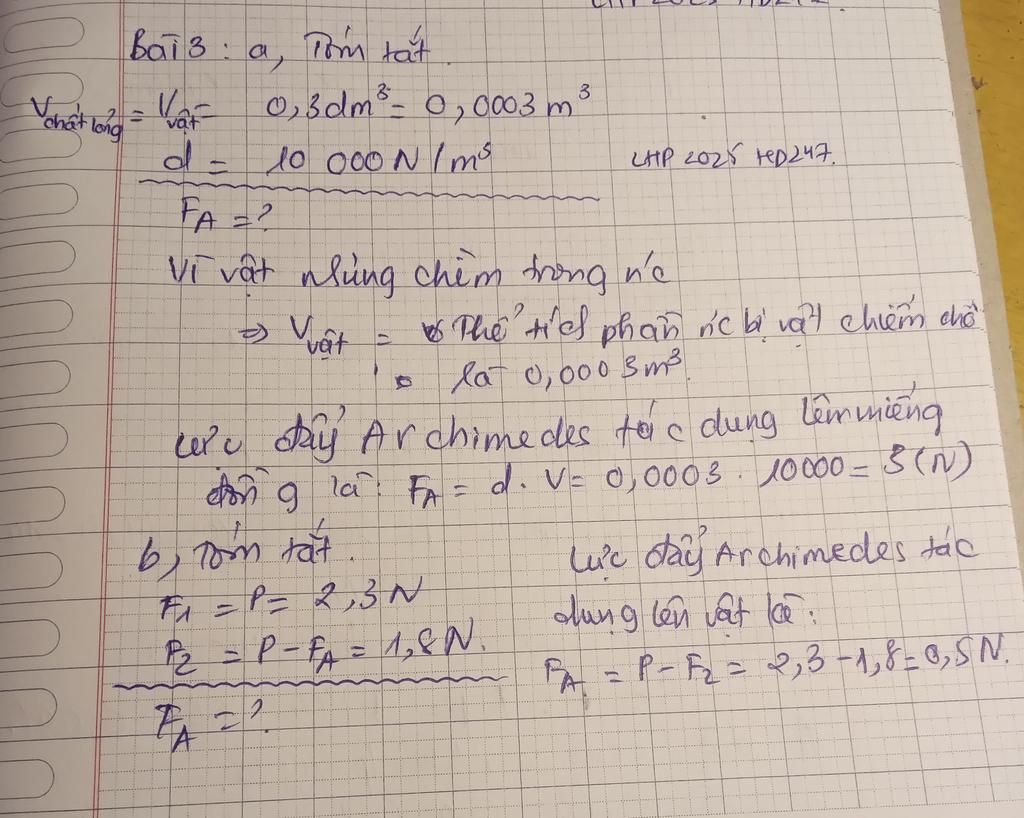 Bài 3 : a, Tóm tắt.
V chất lỏng = V vật = 0,3dm³ = 0,0003 m³
d = 10 000 N/m³
LHP 2025 HD247.
F_A = ?
Vì vật nhúng chìm trong nc
⇒ V vật = Thể tích phần nc bị vật chiếm chỗ
là 0,0003m³.
Lực đẩy Archimedes tác dụng lên miếng
đồng là: F_A = d. V = 0,0003 . 10000 = 3 (N)
b, Tóm tắt.
F₁ = P = 2,3 N
F₂ = P - F_A = 1,8 N.
F_A = ?
Lực đẩy Archimedes tác
dụng lên vật là:
F_A = P - F₂ = 2,3 - 1,8 = 0,5 N.